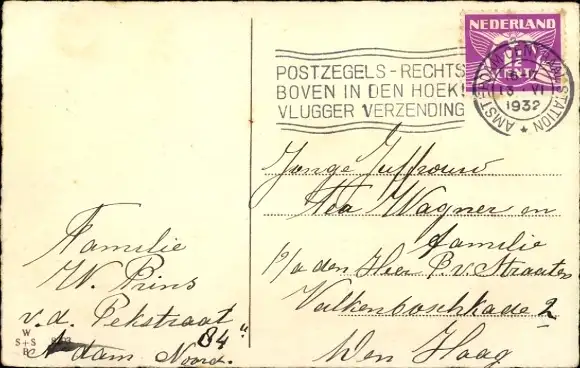 NEDERLAND
1 1/2 CENT
AMSTERDAM CENTRAAL STATION
13 VI
1932
POSTZEGELS - RECHTS
BOVEN IN DEN HOEK!
VLUGGER VERZENDING
Jonge Juffrouw
Wagner en
familie
p/a den Heer P. v. Straaten
Valkenboschkade 2
Den Haag
Familie
W. Prins
v.d. Pekstraat
84"
A'dam Noord.
W
S+S
B